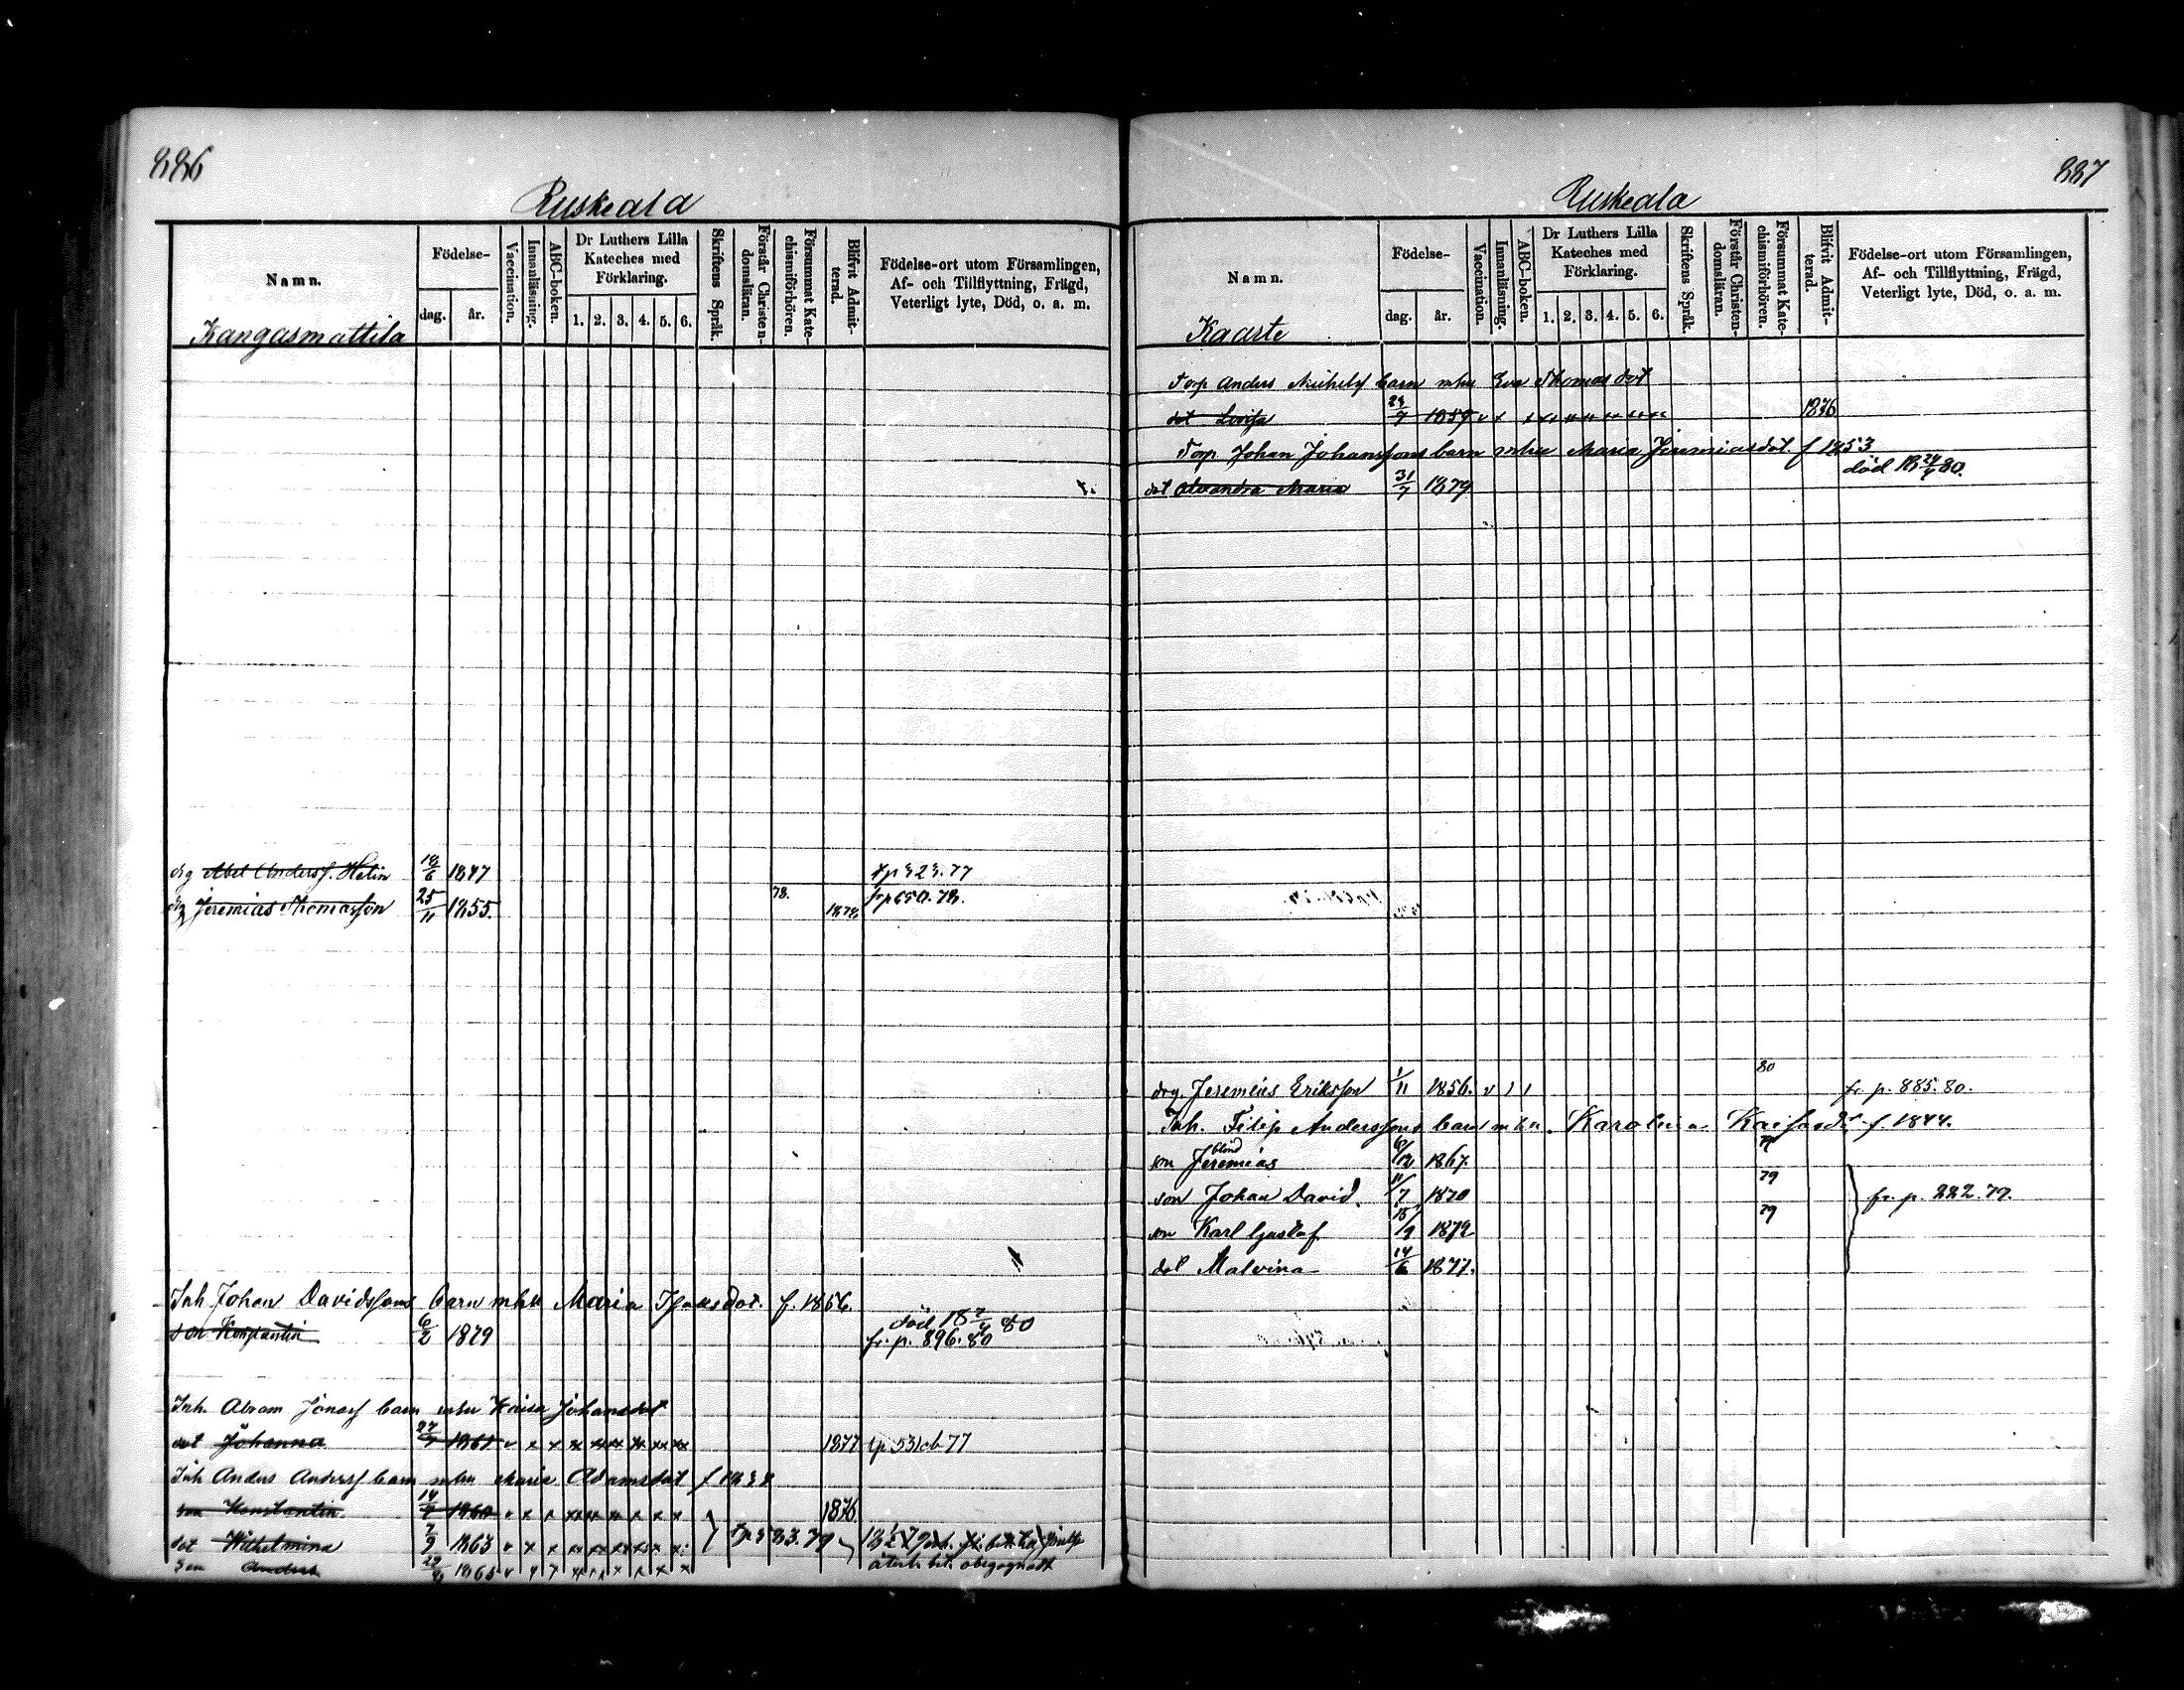 886
Ruskeala
Namn.
Födelse-
dag. år.
Vaccination.
Innanläsning.
ABC-boken.
Dr Luthers Lilla Kateches med Förklaring.
1. 2. 3. 4. 5. 6.
Skriftens Språk.
Förstår Christendomsläran.
Försummat Katechismiförhören.
Blifvit Admitterad.
Födelse-ort utom Församlingen, Af- och Tillflyttning, Frägd, Veterligt lyte, Död, o. a. m.
Kangasmattila
drg Abel Andersf. Helin 18/6 1847 tp 323.77
drg Jeremias Thomasson 25/11 1855. 78. 1878 frp 650.78.
Inh Johan Davidssons barn mhu Maria Isaksdot. f. 1856.
son Konstantin 6/2 1879 död 18 7/4 80 fr. p. 896.80
Inh. Abram Jonasf barn mhu Kaisa Johansdot
dot Johanna 27/7 1861 v x x xx xx xx xx xx xx 1877 tp 531 cb 77
Inh Anders Andersf barn mhu Maria Adamsdot f 1838
son Konstantin 14/9 1860 1876
dot Wilhelmina 7/9 1863 79
son Anders 1865 återk. bet. obegagnadt
887
Ruskeala
Namn.
Födelse-
dag. år.
Vaccination.
Innanläsning.
ABC-boken.
Dr Luthers Lilla Kateches med Förklaring.
1. 2. 3. 4. 5. 6.
Skriftens Språk.
Förstår Christendomsläran.
Försummat Katechismiförhören.
Blifvit Admitterad.
Födelse-ort utom Församlingen, Af- och Tillflyttning, Frägd, Veterligt lyte, Död, o. a. m.
Kaarte
Torp Anders Michelsf barn mhu Eva Thomasdot
dot Lovisa 24/7 1859 1876
Torp Johan Johanssons barn mhu Maria Jeremiasdot. f 1853
dot Alexandra Maria 31/7 1879 död 18 24/4 80.
drg. Jeremias Eriksson 1/11 1856. v 1 1 80 fr. p. 885.80.
Inh. Filip Anderssons barn mhu. Karolina Kaisasd. f 1844.
son Jeremias blind 6/12 1867. 79
son Johan David. 11/7 1870 79 fr. p. 222.79.
son Karl Gustaf 15/9 1872 79
dot Malvina 14/6 1877.